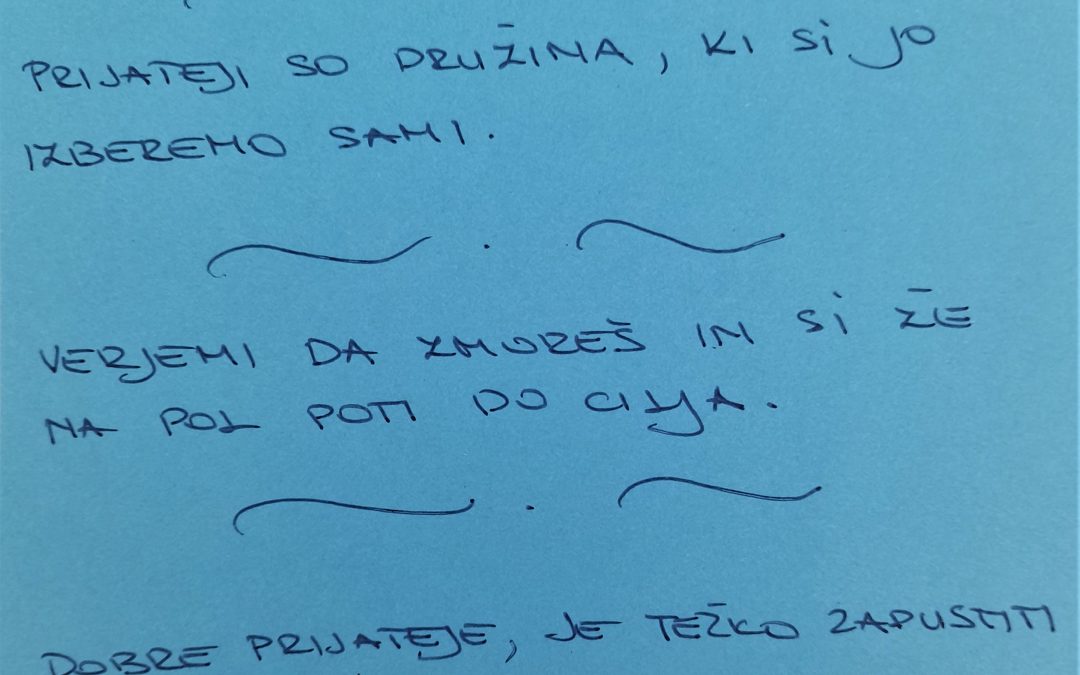 PRIJATEJI SO DRUŽINA, KI SI JO
IZBEREMO SAMI.
VERJEMI DA ZMOREŠ IN SI ŽE
NA POL POTI DO CILJA.
DOBRE PRIJATEJE, JE TEŽKO ZAPUSTITI